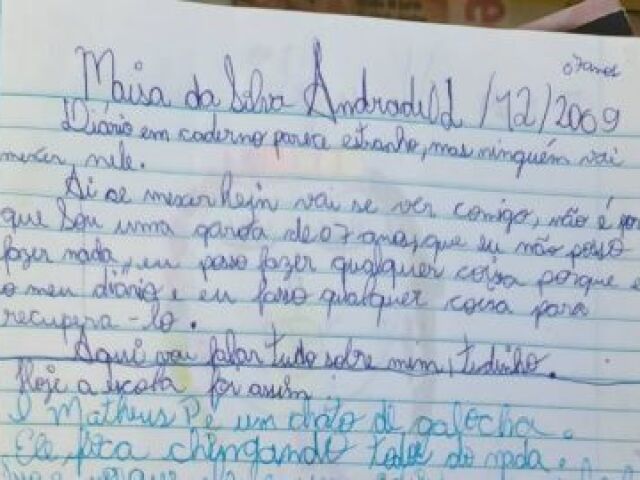 07anos
Maisa da Silva Andrade /12/2009
Diário em caderno parece estranho, mas ninguém vai
mexer, nele.
Ai se mexer vai se ver comigo, não é por
que sou uma garota de 07 anos, que eu não posso
fazer nada, eu posso fazer qualquer coisa porque e
o meu diário e eu faso qualquer coisa para
recupera-lo.
Aqui vai falar tudo sobre mim, tudinho.
Hoje a escola foi assim
O Matheus P é um chato de galocha.
Ele fica chingando do nada.